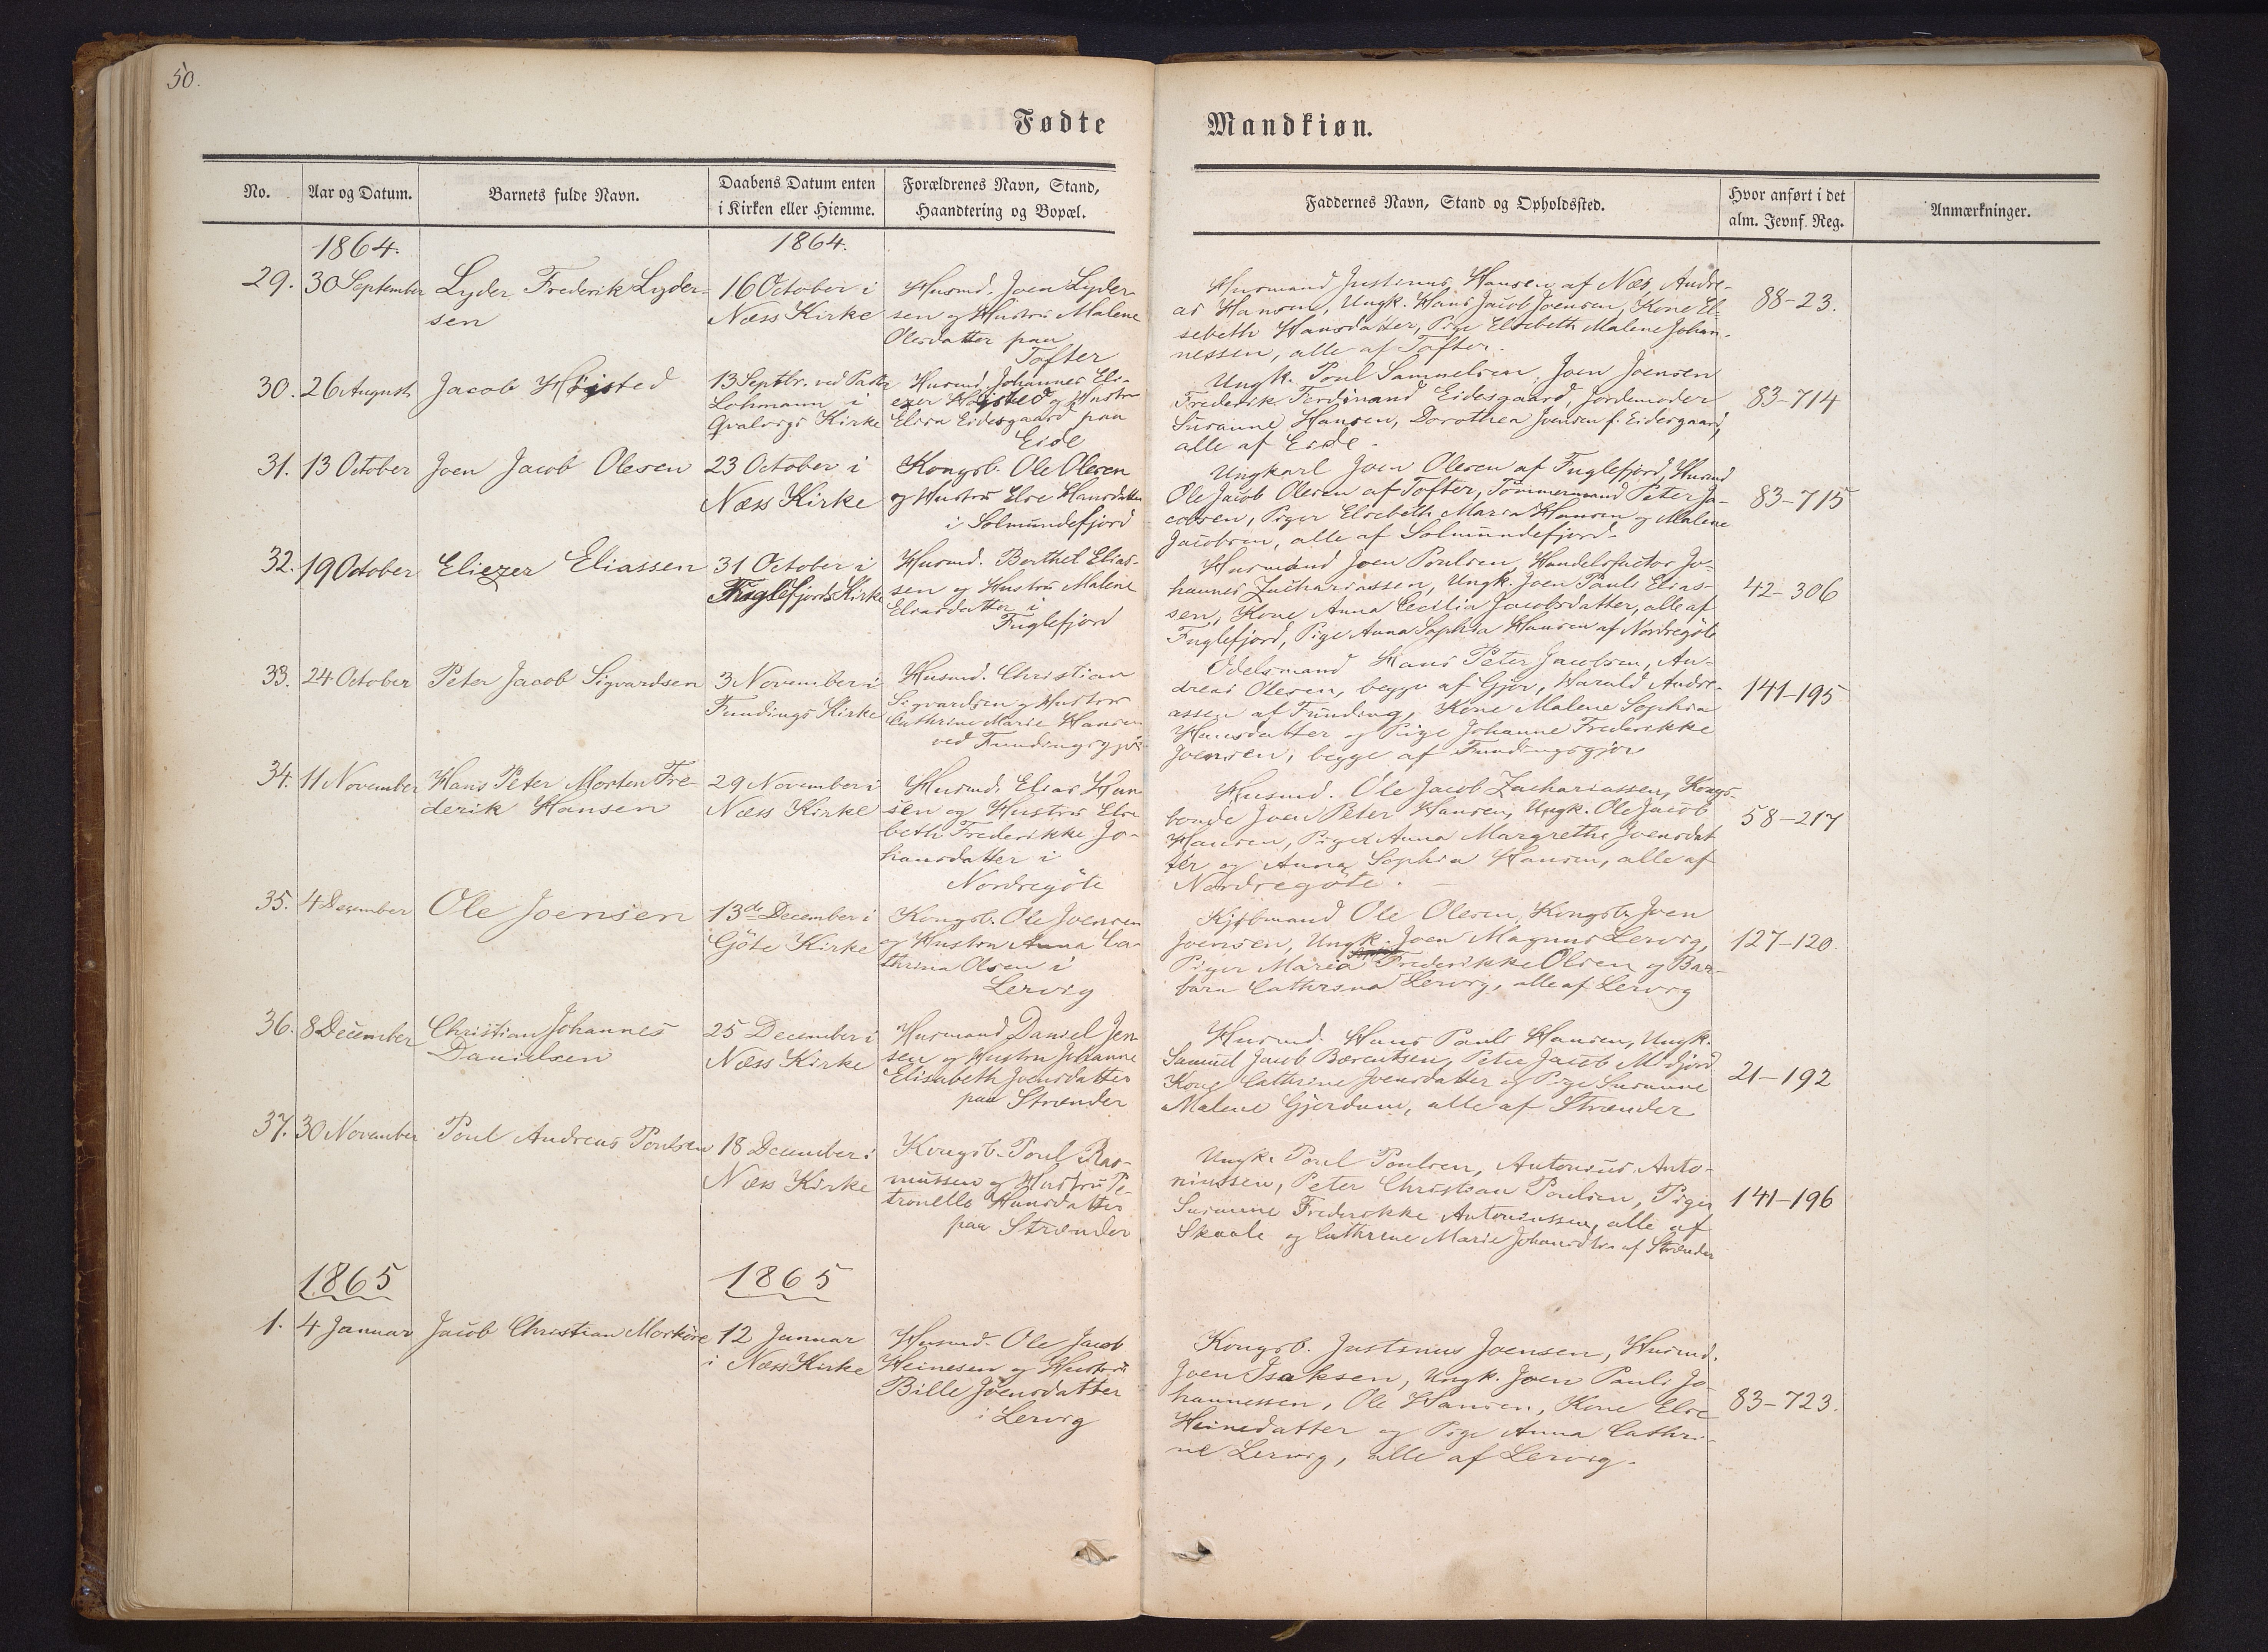 50.
Fødte
Mandkiøn.
No.
Aar og Datum.
Barnets fulde Navn.
Daabens Datum enten
i Kirken eller Hiemme.
Forældrenes Navn, Stand,
Haandtering og Bopæl.
Faddernes Navn, Stand og Opholdssted.
Hvor anført i det
alm. Jevnf. Reg.
Anmærkninger.
1864.
1864.
29.
30 September
Lyder Frederik Lyder-
sen
16 October i
Næss Kirke
Husmd. Joen Lyder-
sen og Hustru Malene
Olesdatter paa
Tofter
Husmand Justinus Hansen af Næs, Andre-
as Hansen, Ungk. Hans Jacob Joensen, Kone El-
sebeth Hansdatter, Pige Elsebeth Malene Johan-
nessen, alle af Tofter.
88-23.
30.
26 August
Jacob Højsted
13 Septbr. ved Pastor
Lohmann i
Qvalvigs Kirke
Husmd. Johannes Eli-
ezer Højsted og Hustru
Elisa Eidesgaard paa
Eide
Ungk. Poul Samuelsen, Joen Joensen
Frederik Ferdinand Eidesgaard, Jordemoder
Susanne Hansen, Dorothea Joensen f. Eidesgaard,
alle af Eide.
83-714
31.
13 October
Joen Jacob Olesen
23 October i
Næss Kirke
Kongsb. Ole Olesen
og Hustru Else Hansdatter
i Solmundefjord
Ungkarl Joen Olesen af Fuglefjord, Husmd
Ole Jacob Olesen af Tofter, Tömmermand Peter Ja-
cobsen, Piger Elsebeth Maria Hansen og Malene
Jacobsen, alle af Solmundefjord.
83-715
32.
19 October
Eliezer Eliassen
31 October i
Fuglefjords Kirke
Husmd. Berthel Elias-
sen og Hustru Malene
Eliasdatter i
Fuglefjord
Husmand Joen Poulsen, Handelsfactor Jo-
hannes Zachariassen, Ungk. Joen Pauli Elias-
sen, Kone Anna Cecilia Jacobsdatter, alle af
Fuglefjord, Pige Anna Sophia Hansen af Nordregöte
42-306
33.
24 October
Peter Jacob Sigvardsen
3 November i
Fundings Kirke
Husmd. Christian
Sigvardsen og Hustru
Cathrine Marie Hansen
ved Fundingsgjov
Odelsmand Hans Peter Jacobsen, An-
dreas Olesen, begge af Gjov, Harald Andre-
assen af Funding, Kone Malene Sophia
Hansdatter og Pige Johanne Frederikke
Joensen, begge af Fundingsgjov
141-195
34.
11 November
Hans Peter Morten Fre-
derik Hansen
29 November i
Næss Kirke
Husmd. Elias Han-
sen og Hustru Else-
beth Frederikke Jo-
hansdatter i
Nordregöte
Husmd. Ole Jacob Zachariassen, Kongs-
bonde Joen Peter Hansen, Ungk. Ole Jacob
Hansen, Piger Anna Margrethe Joensdat
ter og Anna Sophia Hansen, alle af
Nordregöte.
58-217
35.
4 December
Ole Joensen
13de December i
Göte Kirke
Kongsb. Ole Joensen
og Hustru Anna Ca-
thrina Olsen i
Lervig
Kjøbmand Ole Olesen, Kongsb. Joen
Joensen, Ungk. Joen Magnus Lervig,
Piger Maria Frederikke Olsen og Bar-
bara Cathrina Lervig, alle af Lervig
127-120.
36.
8 December
Christian Johannes
Danielsen
25 December i
Næss Kirke
Husmand Daniel Jen
sen og Hustru Johanne
Elisabeth Joensdatter
paa Strænder
Husmd. Hans Pauli Hansen, Ungk.
Samuel Jacob Bærentsen, Peter Jacob Midjord
Kone Cathrine Joensdatter og Pige Susanne
Malene Gjerdum, alle af Strænder
21-192
37.
30 November
Poul Andreas Poulsen
18 December i
Næss Kirke
Kongsb. Poul Ras-
mussen og Hustru Pe-
tronelle Hansdatter
paa Strænder
Ungk. Poul Poulsen, Antonius Anto-
niussen, Peter Christian Poulsen, Piger
Susanne Frederikke Antoniussen, alle af
Skaale og Cathrine Marie Johansdtr. af Strænder
141-196
1865
1865
1.
4 Januar
Jacob Christian Morköre
12 Januar
i Næss Kirke
Husmd. Ole Jacob
Heinesen og Hustru
Bille Joensdatter
i Lervig
Kongsb. Justinus Joensen, Husmd.
Joen Isaksen, Ungk. Joen Pauli Jo-
hannessen, Ole Hansen, Kone Else
Heinedatter og Pige Anna Cathri-
ne Lervig, alle af Lervig.
83-723.